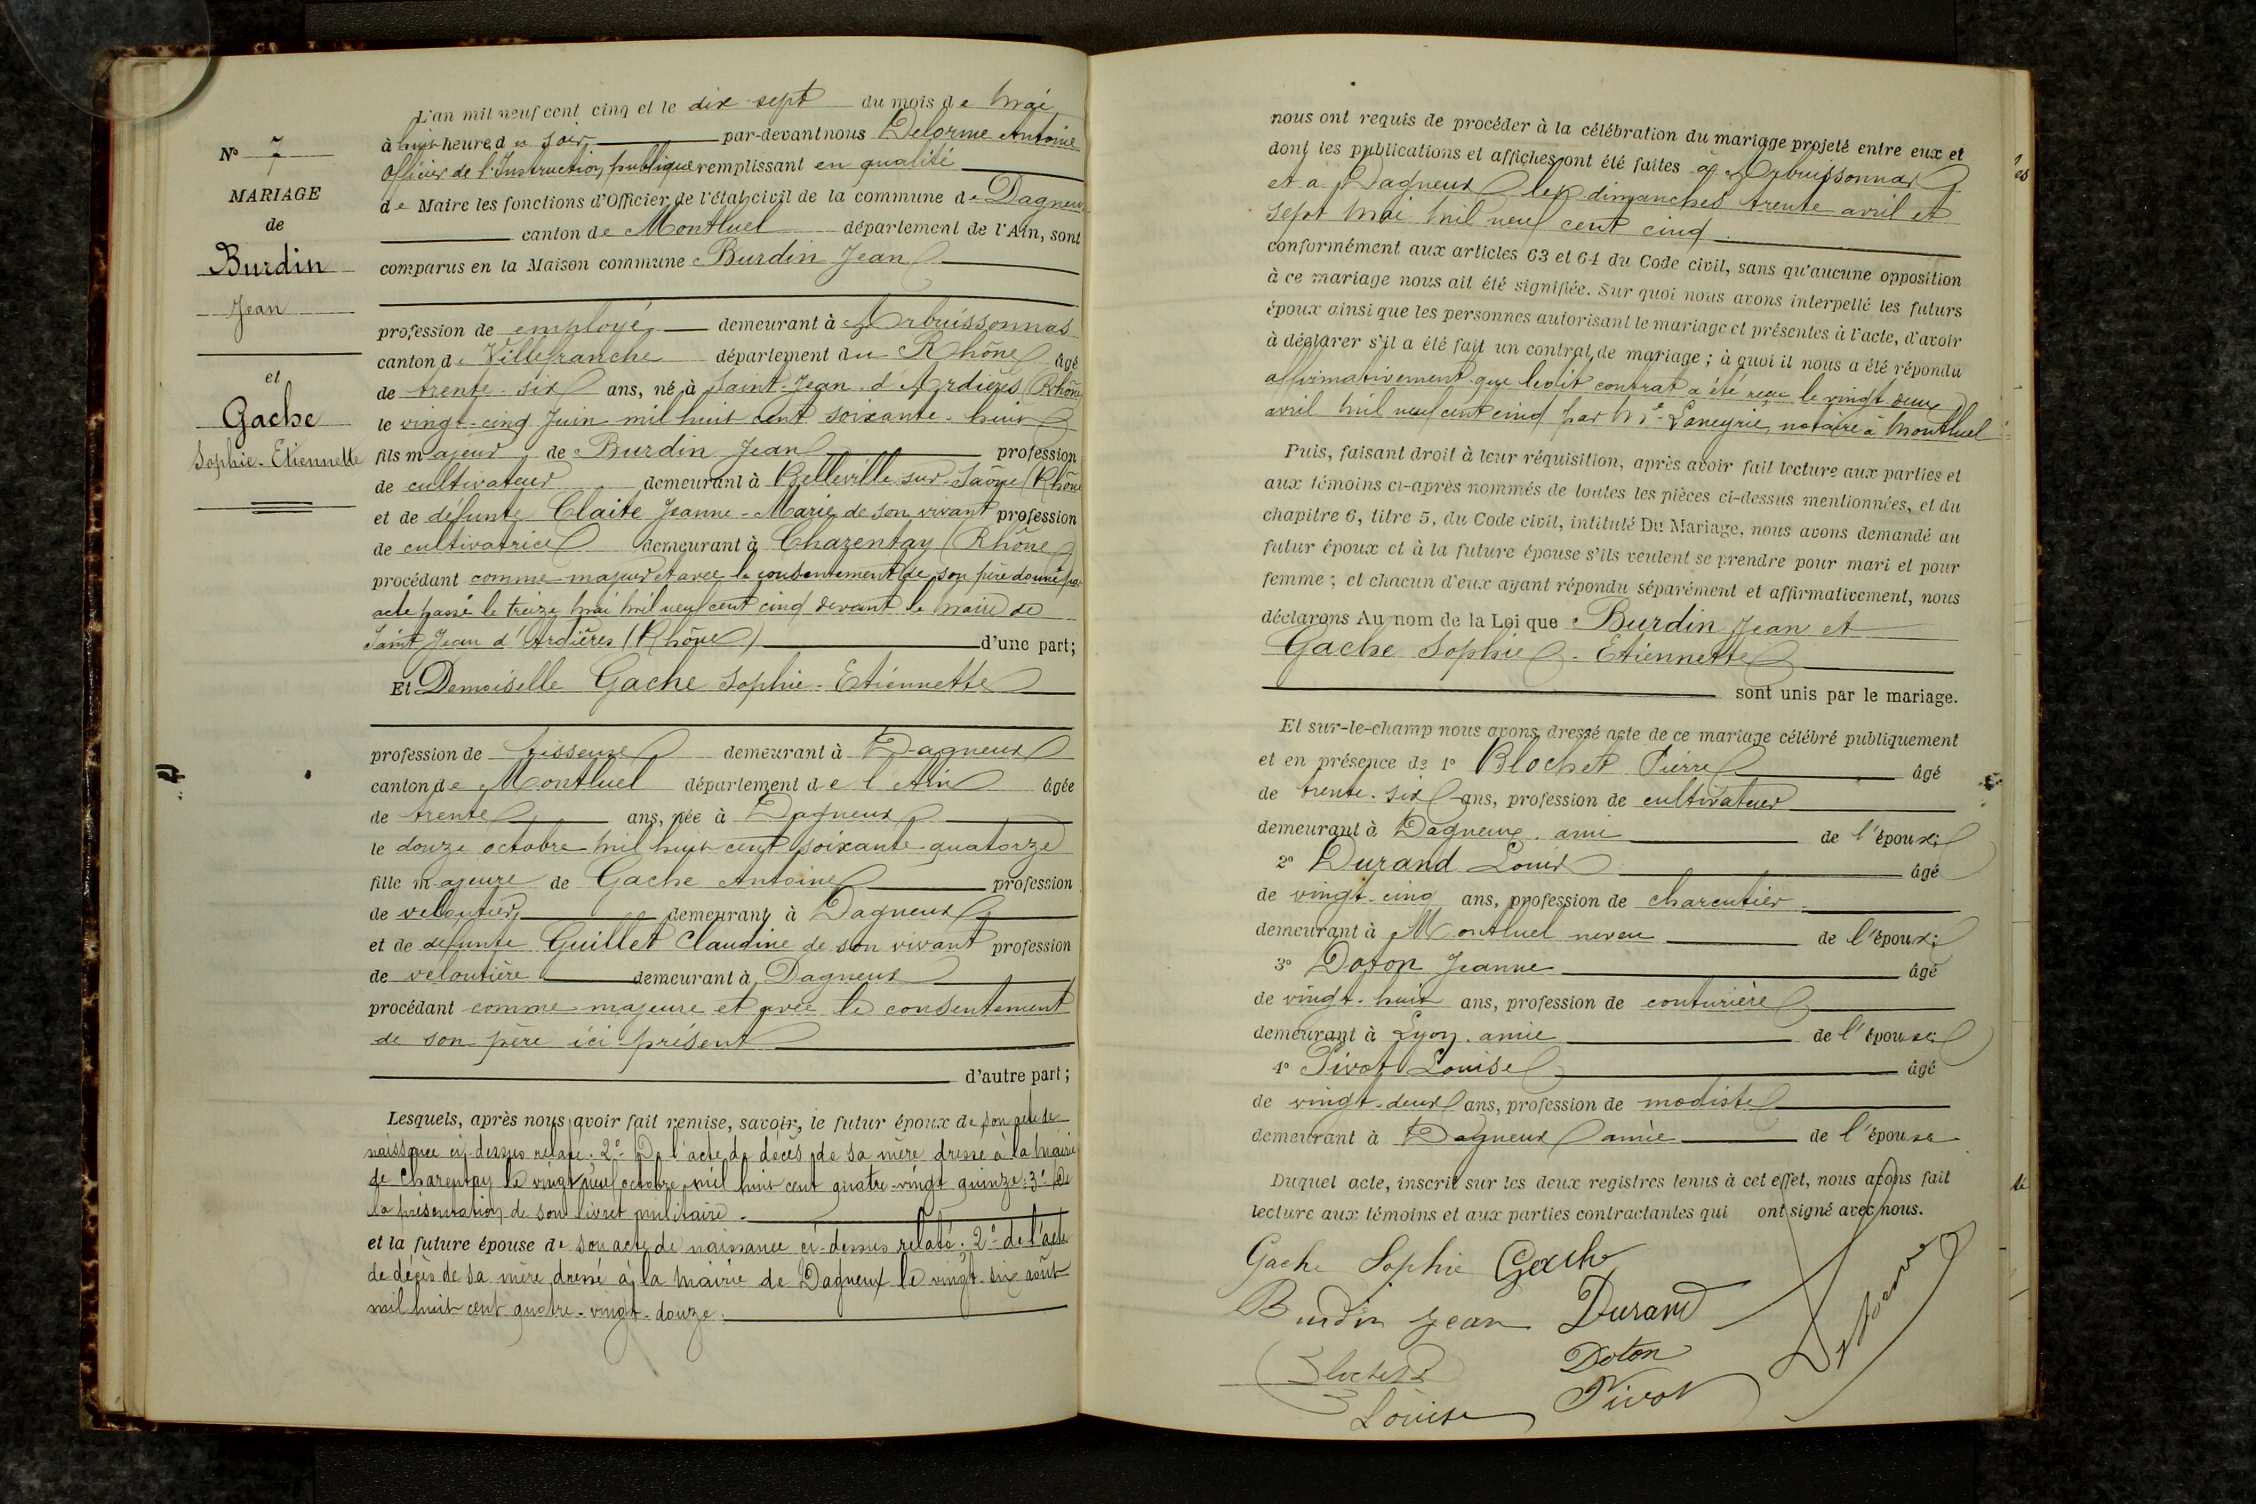 N° 7
MARIAGE
de
Burdin
Jean
et
Gache
Sophie-Etiennette
L'an mil neuf cent cinq et le dix sept du mois de Mai
à huit heure du soir par-devant nous Delorme Antoine
Officier de l'Instruction publique remplissant en qualité
de Maire les fonctions d'Officier de l'état civil de la commune de Dagneux
canton de Montluel département de l'Ain, sont
comparus en la Maison commune Burdin Jean
profession de employé demeurant à Arbuissonnas
canton de Villefranche département du Rhône âgé
de trente-six ans, né à Saint-Jean-d'Ardières (Rhône
le vingt-cinq Juin mil huit cent soixante-huit
fils majeur de Burdin Jean profession
de cultivateur demeurant à Belleville sur Saône (Rhône
et de défunte Claite Jeanne-Marie de son vivant profession
de cultivatrice demeurant à Charentay (Rhône
procédant comme majeur et avec le consentement de son père donné par
acte passé le treize Mai mil neuf cent cinq devant le Maire de
Saint Jean d'Ardières (Rhône) d'une part;
Et Demoiselle Gache Sophie-Etiennette
profession de tisseuse demeurant à Dagneux
canton de Montluel département de l'Ain âgée
de trente ans, née à Dagneux
le douze octobre mil huit cent soixante-quatorze
fille majeure de Gache Antoine profession
de veloutier demeurant à Dagneux
et de défunte Guillet Claudine de son vivant profession
de veloutière demeurant à Dagneux
procédant comme majeure et avec le consentement
de son père ici présent
d'autre part;
Lesquels, après nous avoir fait remise, savoir, le futur époux de son acte de
naissance ci-dessus relaté. 2° De l'acte de décès de sa mère dressé à la Mairie
de Charentay le vingt neuf octobre mil huit cent quatre-vingt quinze: 3° De
la présentation de son livret militaire.
et la future épouse de son acte de naissance ci-dessus relaté. 2° de l'acte
de décès de sa mère dressé à la Mairie de Dagneux le vingt-six août
mil huit cent quatre-vingt-douze.
nous ont requis de procéder à la célébration du mariage projeté entre eux et
dont les publications et affiches ont été faites à Arbuissonnas
et à Dagneux les dimanches trente avril et
sept Mai mil neuf cent cinq
conformément aux articles 63 et 64 du Code civil, sans qu'aucune opposition
à ce mariage nous ait été signifiée. Sur quoi nous avons interpellé les futurs
époux ainsi que les personnes autorisant le mariage et présentes à l'acte, d'avoir
à déclarer s'il a été fait un contrat de mariage; à quoi il nous a été répondu
affirmativement que ledit contrat a été reçu le vingt deux
avril mil neuf cent cinq par Me Laneyrie, notaire à Montluel
Puis, faisant droit à leur réquisition, après avoir fait lecture aux parties et
aux témoins ci-après nommés de toutes les pièces ci-dessus mentionnées, et du
chapitre 6, titre 5, du Code civil, intitulé Du Mariage, nous avons demandé au
futur époux et à la future épouse s'ils veulent se prendre pour mari et pour
femme; et chacun d'eux ayant répondu séparément et affirmativement, nous
déclarons Au nom de la Loi que Burdin Jean et
Gache Sophie-Etiennette
sont unis par le mariage.
Et sur-le-champ nous avons dressé acte de ce mariage célébré publiquement
et en présence de 1° Blochet Pierre âgé
de trente-six ans, profession de cultivateur
demeurant à Dagneux ami de l'époux;
2° Durand Louis âgé
de vingt-cinq ans, profession de charcutier
demeurant à Montluel neveu de l'époux;
3° Doton Jeanne âgé
de vingt-huit ans, profession de couturière
demeurant à Lyon amie de l'épouse;
4° Pivot Louise âgé
de vingt-deux ans, profession de modiste
demeurant à Dagneux amie de l'épouse
Duquel acte, inscrit sur les deux registres tenus à cet effet, nous avons fait
lecture aux témoins et aux parties contractantes qui ont signé avec nous.
Gache Sophie Gache
Burdin Jean Durand
Blochet Doton
Louise Pivot
Delorme